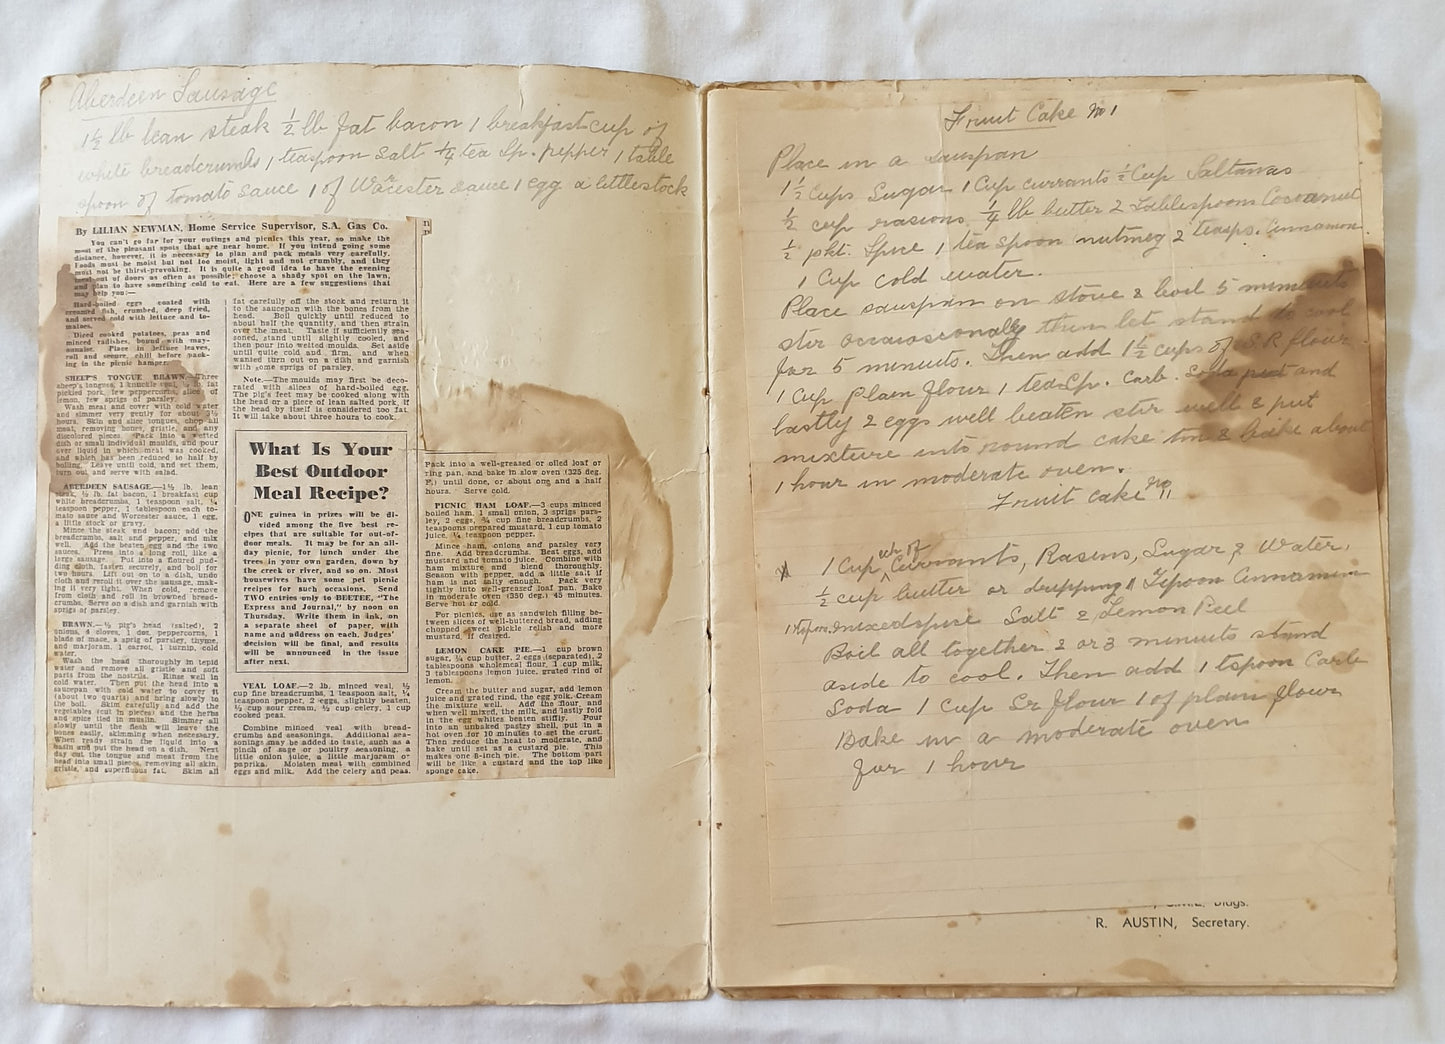 Aberdeen Sausage
1½ lb lean steak ½ lb fat bacon 1 breakfast cup of
white breadcrumbs 1 teaspoon salt ¼ tea sp. pepper 1 table
spoon of tomato sauce 1 of Worcester sauce 1 egg a little stock
By LILIAN NEWMAN, Home Service Supervisor, S.A. Gas Co.
You can't go far for your outings and picnics this year, so make the
most of the pleasant spots that are near home. If you intend going some
distance, however, it is necessary to plan and pack meals very carefully.
Foods must be moist but not too moist, light and not crumbly, and they
must not be thirst-provoking. It is quite a good idea to have the evening
meal out of doors as often as possible; choose a shady spot on the lawn,
and plan to have something cold to eat. Here are a few suggestions that
may help you:—
Hard-boiled eggs coated with
creamed fish, crumbed, deep fried,
and served cold with lettuce and to-
matoes.
Diced cooked potatoes, peas and
minced radishes, bound with may-
onnaise. Place in lettuce leaves,
roll and secure, chill before pack-
ing in the picnic hamper.
SHEEP'S TONGUE BRAWN.—Three
sheep's tongues, 1 knuckle veal, ½ lb fat
pickled pork, few peppercorns, slice of
lemon, few sprigs of parsley.
Wash meat and cover with cold water
and simmer very gently for about 3½
hours. Skin and slice tongues, chop all
meat, removing bones, gristle, and any
discolored pieces. Pack into a wetted
dish or small individual moulds, and pour
over liquid in which meat was cooked,
and which has been reduced to half by
boiling. Leave until cold, and set them,
turn out, and serve with salad.
ABERDEEN SAUSAGE.—1½ lb. lean
steak, ½ lb. fat bacon, 1 breakfast cup
white breadcrumbs, 1 teaspoon salt, ¼
teaspoon pepper, 1 tablespoon each to-
mato sauce and Worcester sauce, 1 egg,
a little stock or gravy.
Mince the steak and bacon; add the
breadcrumbs, salt and pepper, and mix
well. Add the beaten egg and the two
sauces. Press into a long roll, like a
large sausage. Put into a floured pud-
ding cloth, fasten securely, and boil for
two hours. Lift out on to a dish, undo
cloth and reroll it over the sausage, mak-
ing it very tight. When cold, remove
from cloth and roll in browned bread-
crumbs. Serve on a dish and garnish with
sprigs of parsley.
BRAWN.—½ pig's head (salted), 2
onions, 4 cloves, 1 doz. peppercorns, 1
blade of mace, a sprig of parsley, thyme,
and marjoram, 1 carrot, 1 turnip, cold
water.
Wash the head thoroughly in tepid
water and remove all gristle and soft
parts from the nostrils. Rinse well in
cold water. Then put the head into a
saucepan with cold water to cover it
(about two quarts) and bring slowly to
the boil. Skim carefully and add the
vegetables (cut in pieces) and the herbs
and spice tied in muslin. Simmer all
slowly until the flesh will leave the
bones easily, skimming when necessary.
When ready strain the liquid into a
basin and put the head on a dish. Next
day cut the tongue and meat from the
head into small pieces, removing all skin,
gristle, and superfluous fat. Skim all
fat carefully off the stock and return it
to the saucepan with the bones from the
head. Boil quickly until reduced to
about half the quantity, and then strain
over the meat. Taste if sufficiently sea-
soned, stand until slightly cooled, and
then pour into wetted moulds. Set aside
until quite cold and firm, and when
wanted turn out on a dish and garnish
with some sprigs of parsley.
Note.—The moulds may first be deco-
rated with slices of hard-boiled egg.
The pig's feet may be cooked along with
the head or a piece of lean salted pork, if
the head by itself is considered too fat.
It will take about three hours to cook.
What Is Your
Best Outdoor
Meal Recipe?
ONE guinea in prizes will be di-
vided among the five best re-
cipes that are suitable for out-of-
door meals. It may be for an all-
day picnic, for lunch under the
trees in your own garden, down by
the creek or river, and so on. Most
housewives have some pet picnic
recipes for such occasions. Send
TWO entries only to BEETEE, "The
Express and Journal," by noon on
Thursday. Write them in ink, on
a separate sheet of paper, with
name and address on each. Judges'
decision will be final, and results
will be announced in the issue
after next.
VEAL LOAF.—2 lb. minced veal, ½
cup fine breadcrumbs, 1 teaspoon salt, ¼
teaspoon pepper, 2 eggs, slightly beaten,
½ cup sour cream, ½ cup celery, 1 cup
cooked peas.
Combine minced veal with bread-
crumbs and seasonings. Additional sea-
sonings may be added to taste, such as a
pinch of sage or poultry seasoning, a
little onion juice, a little marjoram or
paprika. Moisten meat with combined
eggs and milk. Add the celery and peas.
Pack into a well-greased or oiled loaf or
ring pan, and bake in slow oven (325 deg.
F.) until done, or about one and a half
hours. Serve cold.
PICNIC HAM LOAF.—3 cups minced
boiled ham, 1 small onion, 3 sprigs pars-
ley, 2 eggs, ¾ cup fine breadcrumbs, 2
teaspoons prepared mustard, 1 cup tomato
juice, ¼ teaspoon pepper.
Mince ham, onions and parsley very
fine. Add breadcrumbs. Beat eggs, add
mustard and tomato juice. Combine with
ham mixture and blend thoroughly.
Season with pepper, add a little salt if
ham is not salty enough. Pack very
tightly into well-greased loaf pan. Bake
in moderate oven (350 deg.) 45 minutes.
Serve hot or cold.
For picnic, use as sandwich filling be-
tween slices of well-buttered bread, adding
chopped sweet pickle relish and more
mustard, if desired.
LEMON CAKE PIE.—1 cup brown
sugar, ¼ cup butter, 2 eggs (separated), 2
tablespoons wholemeal flour, 1 cup milk,
3 tablespoons lemon juice, grated rind of
lemon.
Cream the butter and sugar, add lemon
juice and grated rind, the egg yolk. Cream
the mixture well. Add the flour, and
when well mixed, the milk, and lastly fold
in the egg whites beaten stiffly. Pour
into an unbaked pastry shell, put in a
hot oven for 10 minutes to set the crust.
Then reduce the heat to moderate, and
bake until set as a custard pie. This
makes one 8-inch pie. The bottom part
will be like a custard and the top like
sponge cake.
Fruit Cake No 1
Place in a sauspan
1½ Cups Sugar 1 Cup currants ½ Cup Saltanas
½ cup rasions ¼ lb butter 2 Tablespoons Cocoanut
½ pkt. Spice 1 tea spoon nutmeg 2 teasps. Cinnamon
1 Cup cold water.
Place sauspan on stove & boil 5 minnuits
stir occaisionally then let stand to cool
for 5 minuits. Then add 1½ cups of S.R flour
1 Cup Plain flour 1 tea Sp. Carb. Soda put and
lastly 2 eggs well beaten stir well & put
mixture into round cake tin & bake about
1 hour in moderate oven.
Fruit cake No 11
1 Cup each of Currants, Rasens, Sugar & Water,
½ cup butter or dripping 1 Tspoon Cinnamon
1 Tspon. mixed spice Salt & Lemon Peel
Boil all together 2 or 3 minuits stand
aside to cool. Then add 1 tspoon Carb
Soda 1 Cup Sr flour 1 of plain flour
Bake in a moderate oven
for 1 hour
Bldgs.
R. AUSTIN, Secretary.